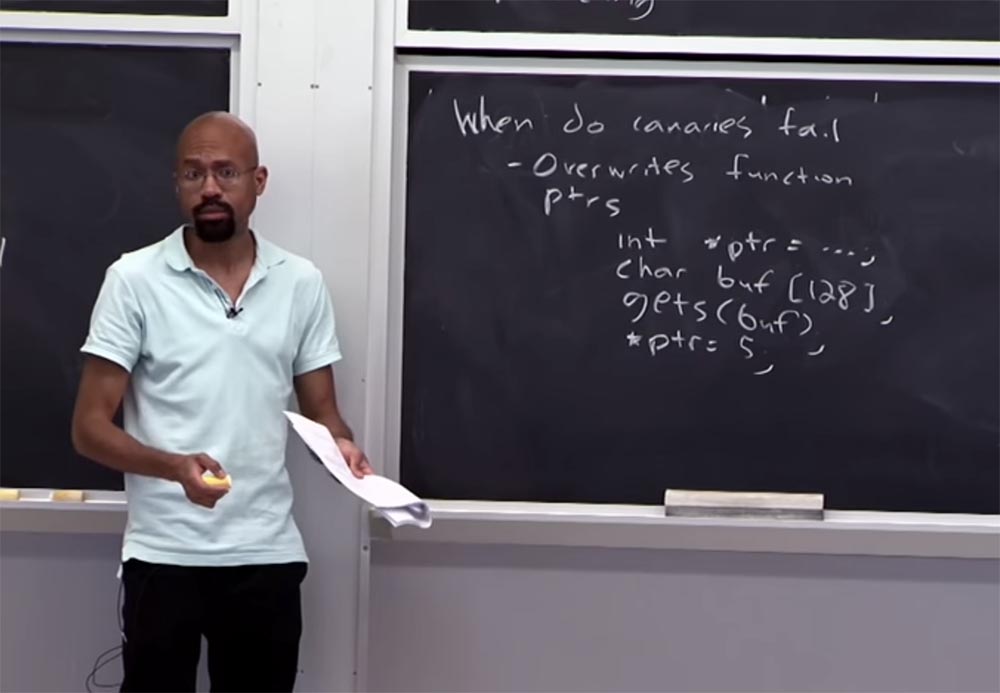 When do canaries fail
- Overwrites function
ptrs
int *ptr = ....;
char buf [128];
gets(buf);
*ptr = 5;